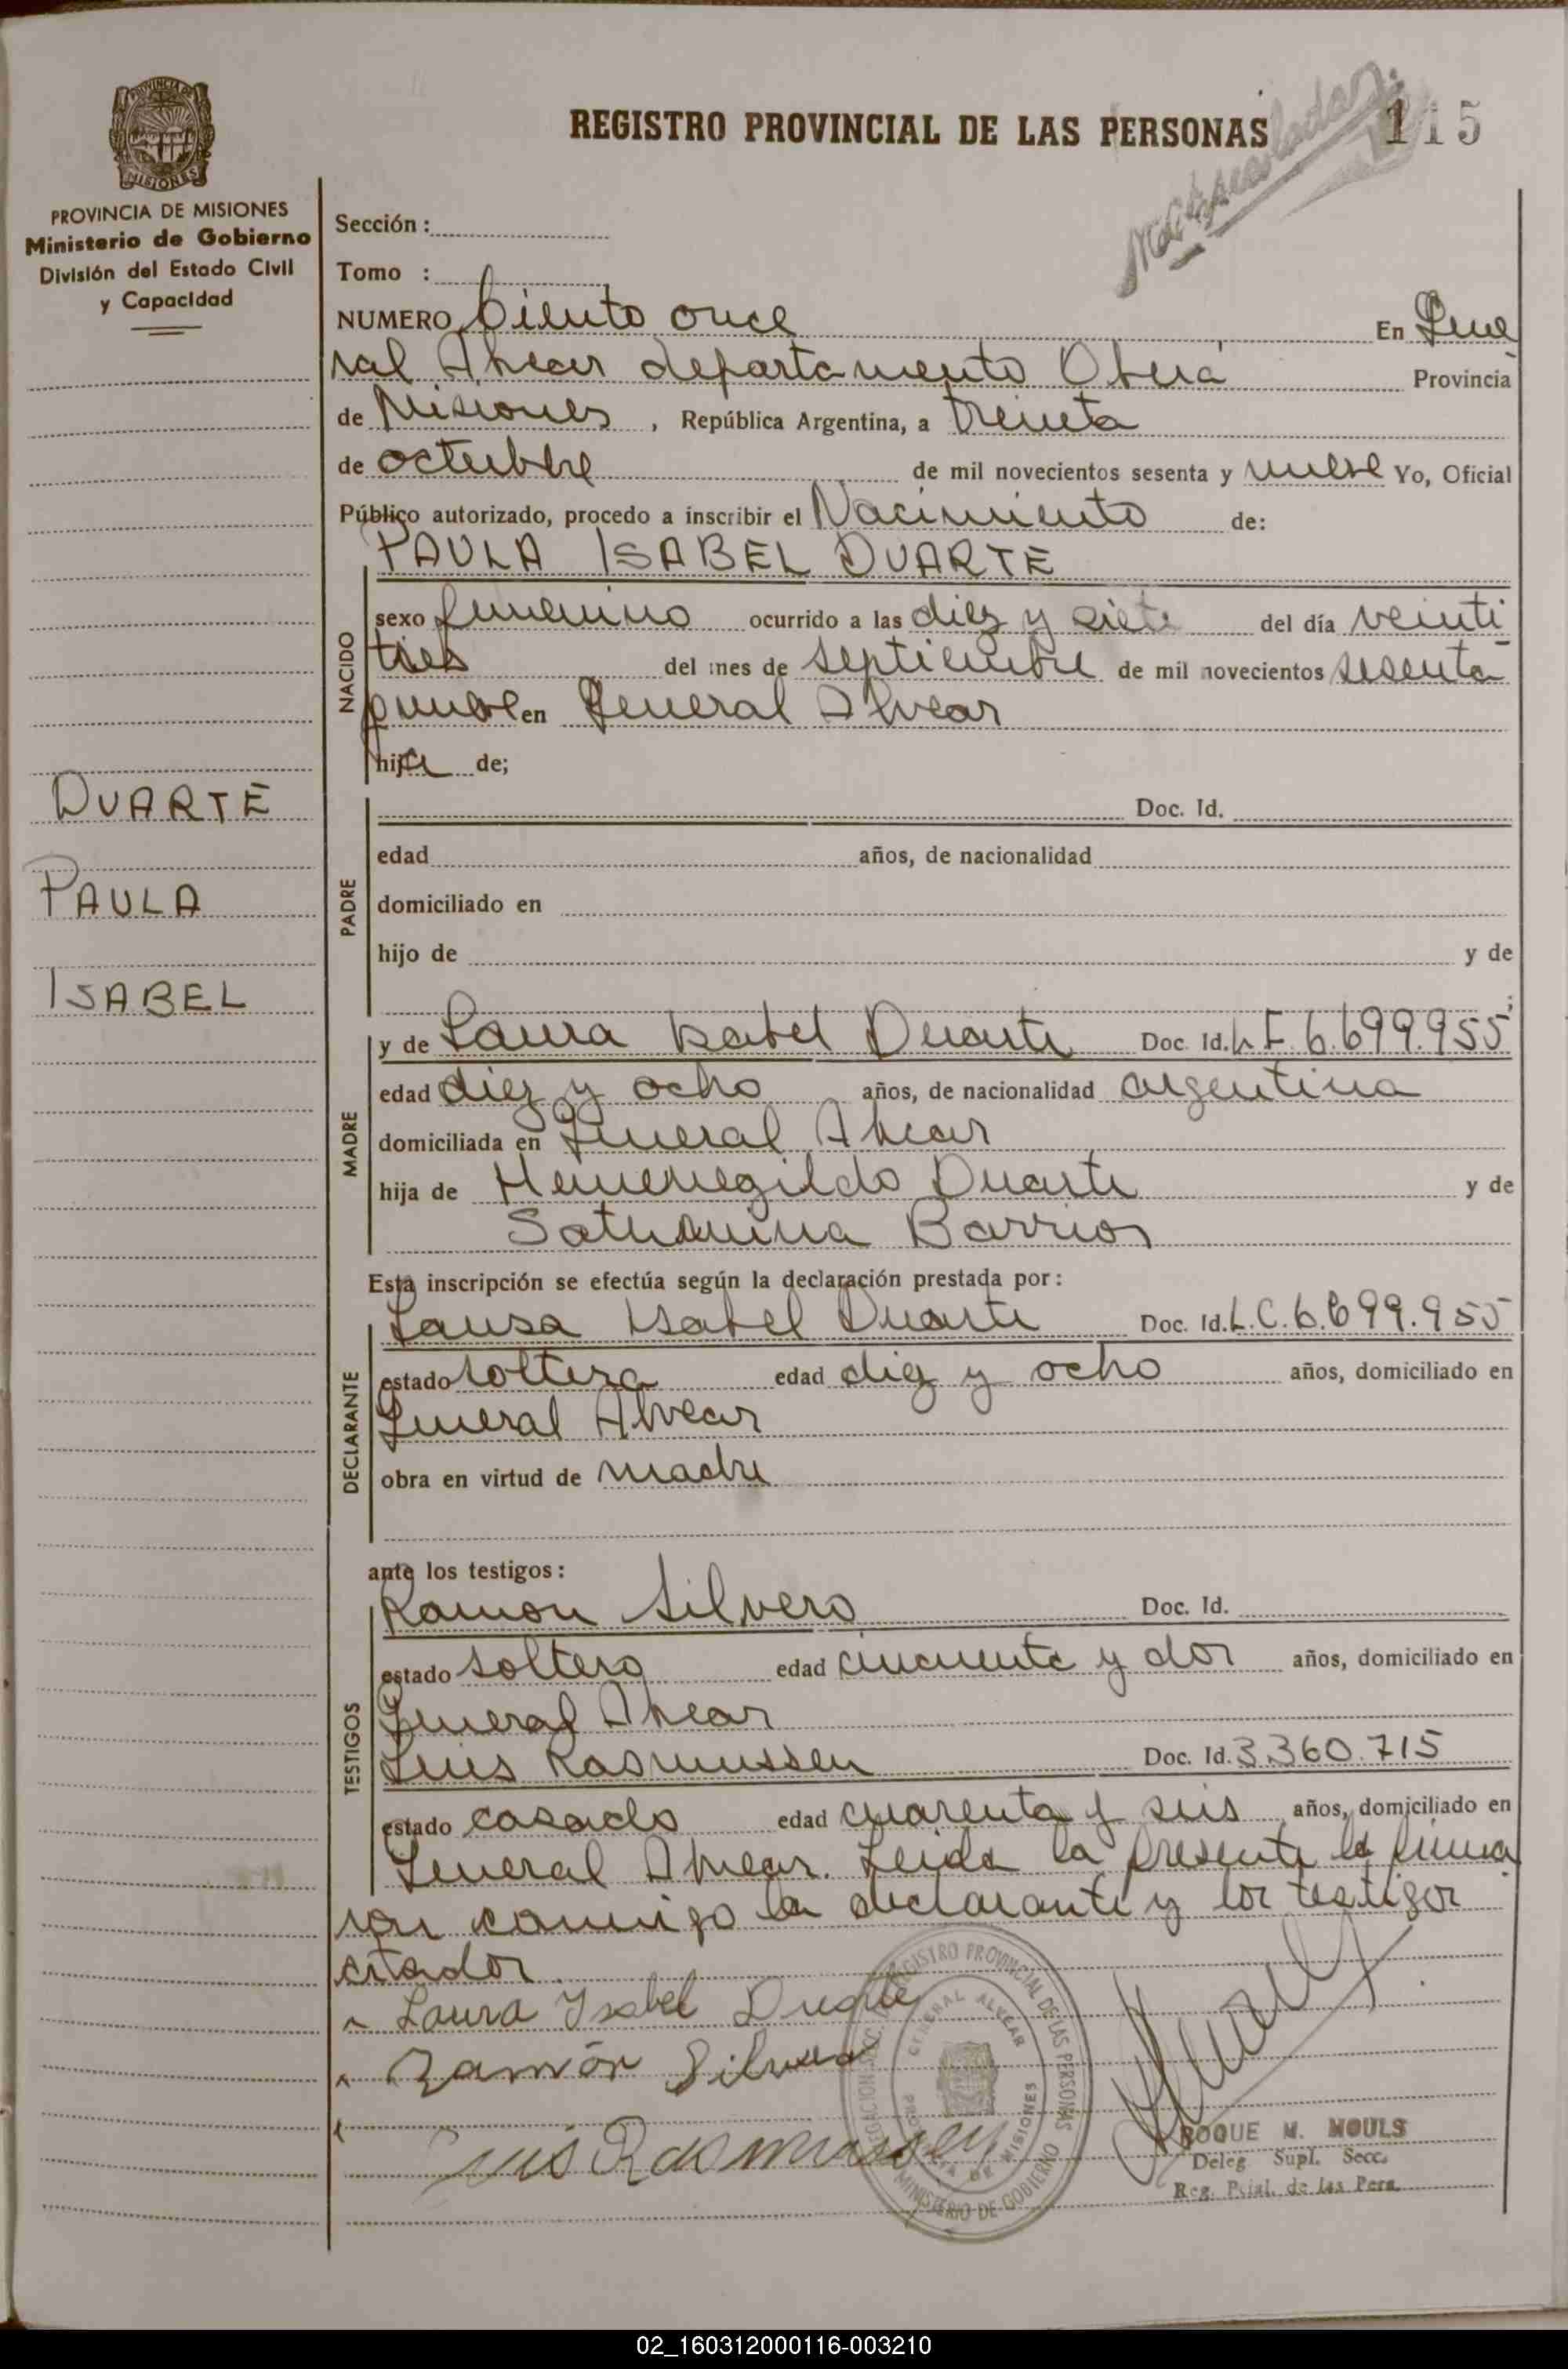 PROVINCIA DE MISIONES
Ministerio de Gobierno
División del Estado Civil
y Capacidad
REGISTRO PROVINCIAL DE LAS PERSONAS
115
Sección :
Tomo :
NUMERO Ciento once En Gene
ral Alvear departamento Oberá Provincia
de Misiones , República Argentina, a treinta
de octubre de mil novecientos sesenta y nueve Yo, Oficial
Público autorizado, procedo a inscribir el Nacimiento de:
NACIDO
PAULA ISABEL DUARTE
sexo femenino ocurrido a las diez y siete del día veinti
tres del mes de septiembre de mil novecientos sesenta
y nueve en General Alvear
hija de;
DUARTE
PAULA
ISABEL
PADRE
Doc. Id.
edad años, de nacionalidad
domiciliado en
hijo de y de
MADRE
y de Laura Isabel Duarte Doc. Id. 6.699.955
edad diez y ocho años, de nacionalidad argentina
domiciliada en General Alvear
hija de Hemenegildo Duarte y de
Barrios
Esta inscripción se efectúa según la declaración prestada por:
DECLARANTE
Laura Isabel Duarte Doc. Id. L.C. 6.699.955
estado soltera edad diez y ocho años, domiciliado en
General Alvear
obra en virtud de madre
ante los testigos:
TESTIGOS
Ramon Silvero Doc. Id.
estado soltero edad cincuenta y dos años, domiciliado en
General Alvear
Luis Rasmussen Doc. Id. 3.360.715
estado casado edad cuarenta y seis años, domiciliado en
General Alvear. Leida la presente la firma
ron conmigo la declarante y los testigos
citados
Laura Ysabel Duarte
Ramón Silvero
Luis Rasmussen
REGISTRO PROVINCIAL DE LAS PERSONAS
GENERAL ALVEAR
PROVINCIA DE MISIONES
MINISTERIO DE GOBIERNO
ROQUE M. MOULS
Deleg. Supl. Secc.
Reg. Pcial. de las Pers.
02_160312000116-003210